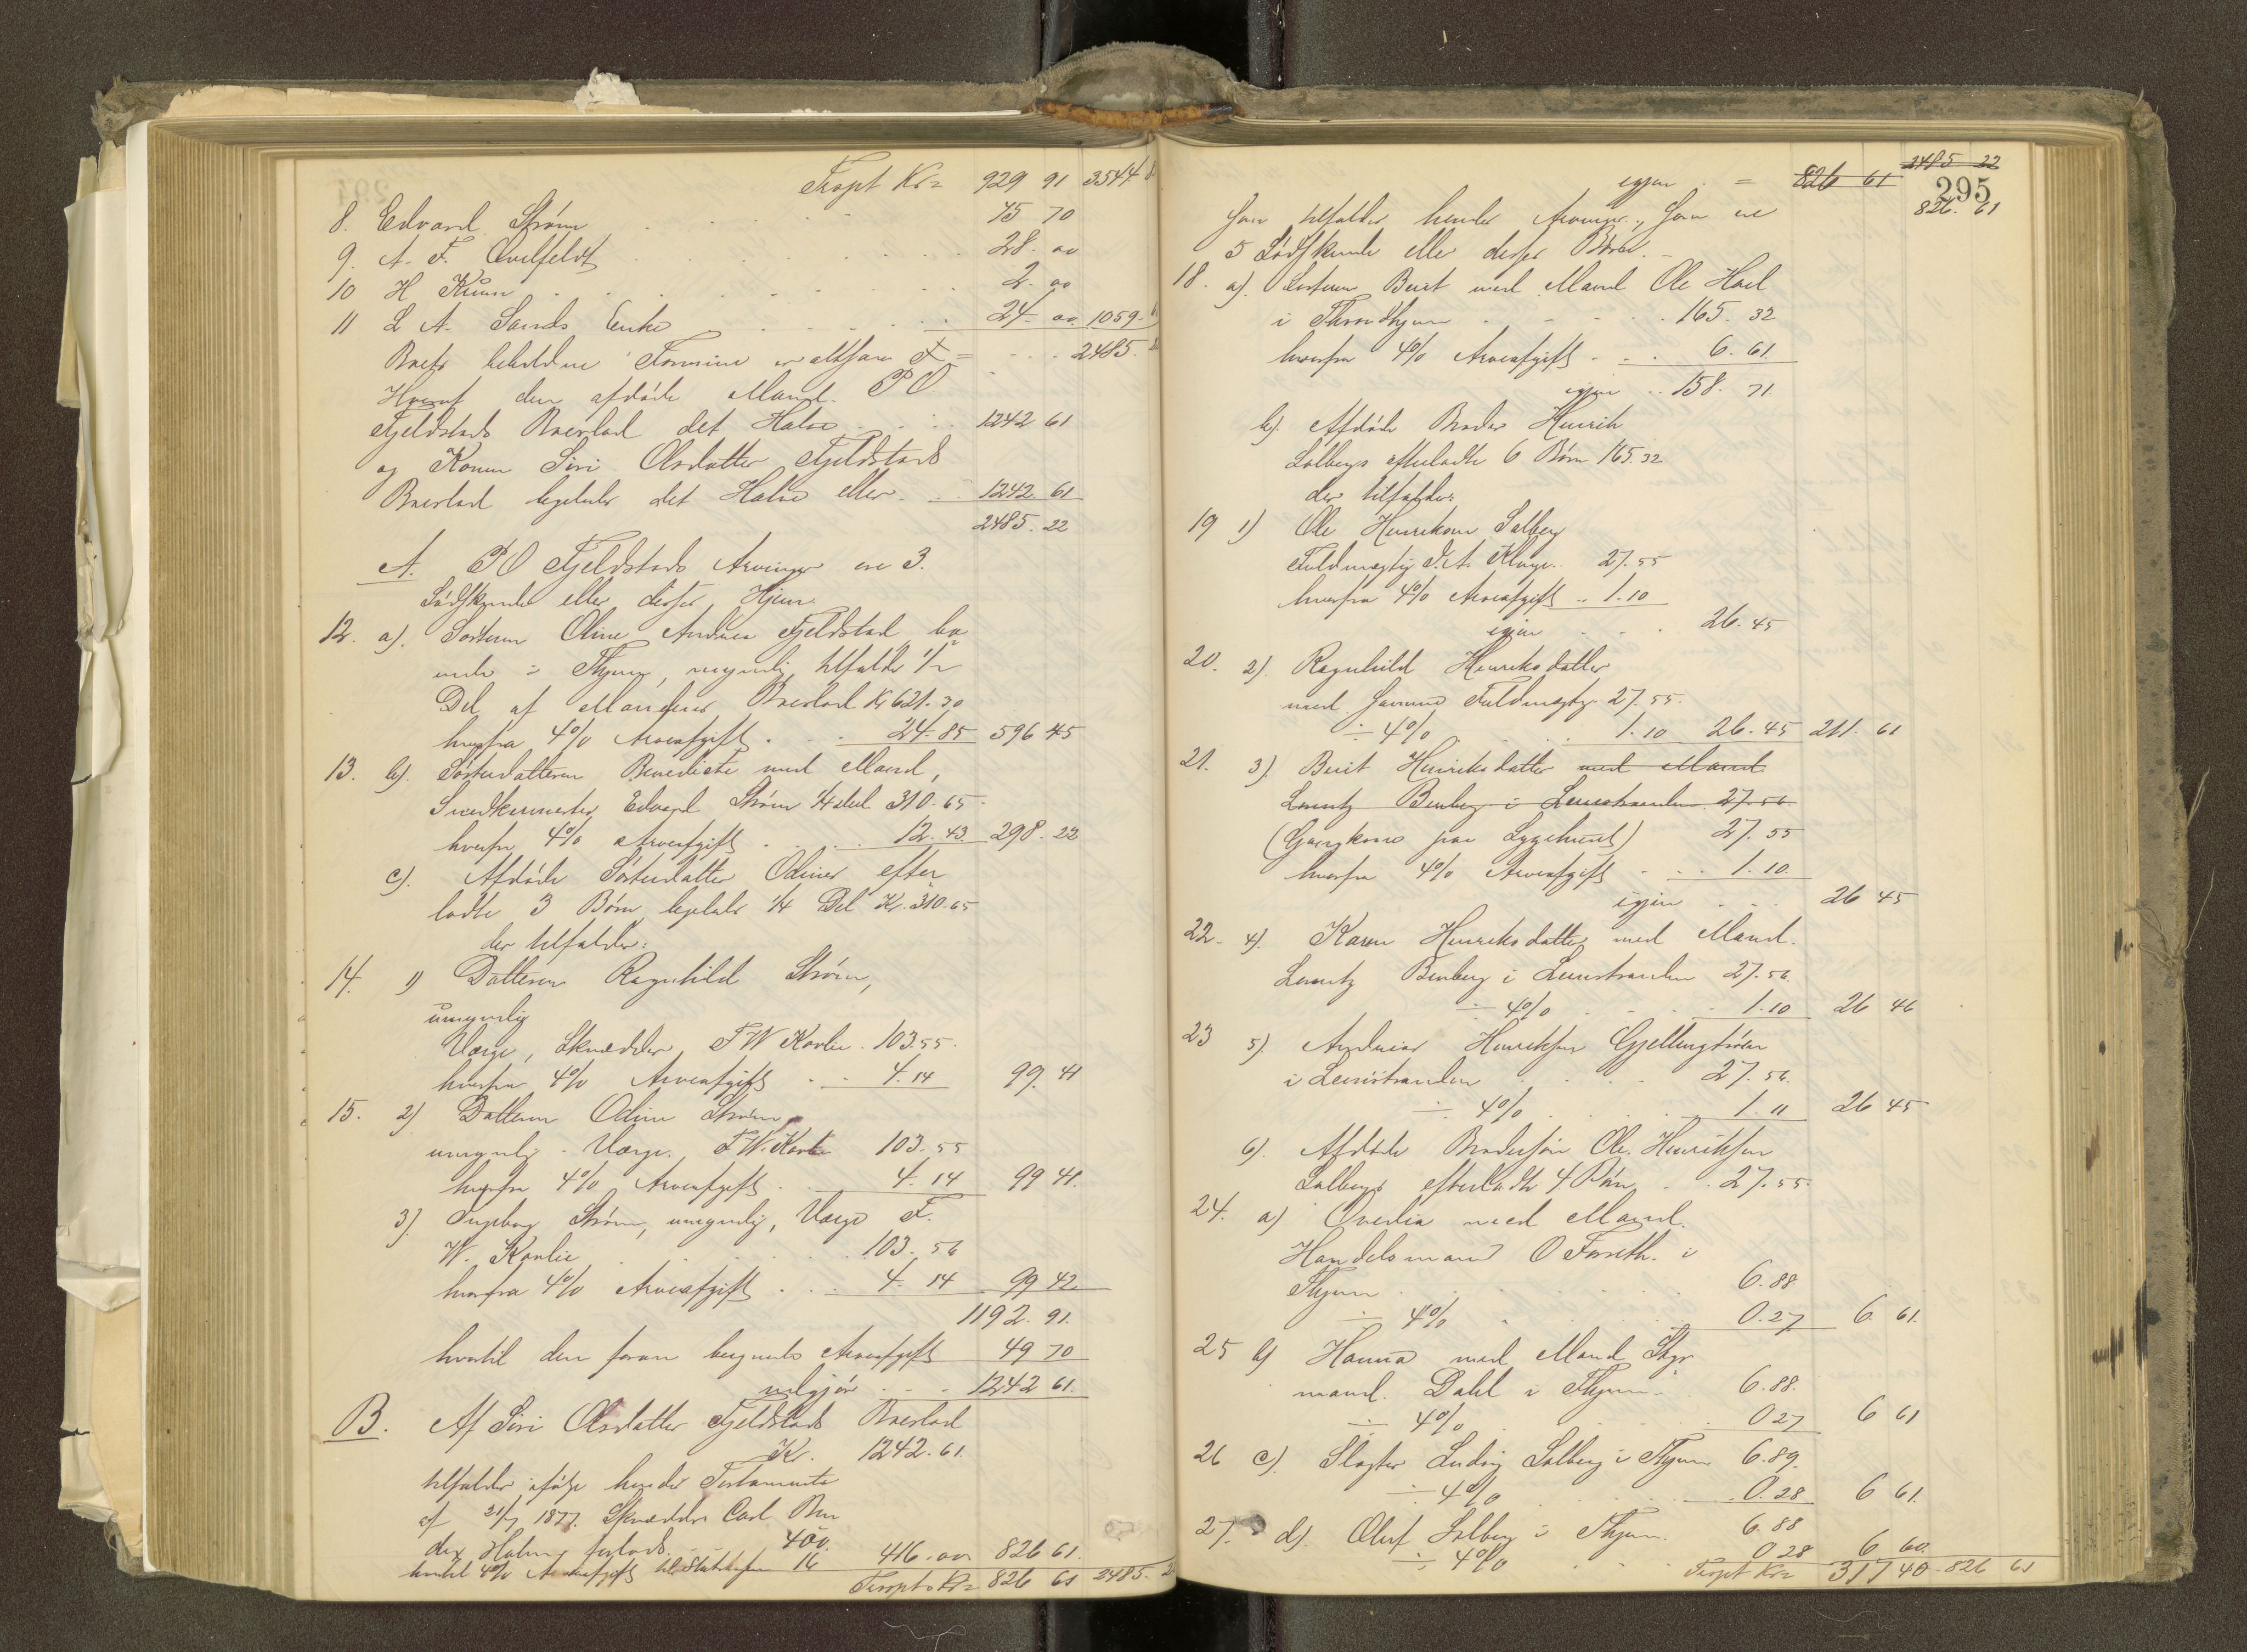 Trspt Kr= 929 91 3544
8. Edvard Strøm 45 70
9. A. F. Qvelfeldt 28. 00
10 H 2. 00
11 L A. Sands Enke 24 00. 1059-
Boets beholdne Formue altsaa = 2485.
Hvoraf den afdöde Mand P O
Fjeldstads Boeslod det Halve 1242 61
og Konen Siri Olsdatter Fjeldstads
Boeslod ligeledes det Halve eller 1242. 61
2485. 22
A. P O Fjeldstads Arvinger ere 3.
Södskende eller disses
12. a). Söstern Oline Andrea Fjeldstad bo
ende i Thjem, myndig tilfalder 1/2
Del af Mandens Boeslod Kr 621. 30
hvorfra 4% Arveafgift 24. 85 596 45
13. b). Sösterdatteren Benedicte med Mand,
Snedkermester Edvard Strøm 1/4 del 310. 65
hvorfra 4% Arveafgift 12. 43. 298. 22
c). Afdöde Sösterdatter Odines efter
ladte 3 Börn ligeledes 1/4 Del Kr. 310. 65
der tilfalder:
14. 1) Datteren Ragnhild Strøm,
umyndig
Værge, Skrædder F W Kavlie. 103.55.
hvorfra 4% Arveafgift 4. 14 99. 41
15. 2) Datteren Odine Strøm
umyndig. Værge. F W. Kavlie 103. 55
hvorfra 4% Arveafgift 4. 14 99 41.
3). Ingeborg Strøm, umyndig, Værge F.
W. Kavlie 103. 56
hvorfra 4% Arveafgift 4. 14 99 42.
1192. 91.
hvortil den foran beregnede Arveafgift 49 70
udgjör 1242 61.
B. Af Siri Olsdatter Fjeldstads Boeslod
Kr. 1242. 61.
tilfalder ifölge hendes Testamente
af 21/7 1877. Skrædder Carl Ben
dix Holm forlods. 400.
hvortil 4% Arveafgift til Statskassen 16 416. 00 826 61.
Trspt Kr= 826 61 2485.
igjen = 826 61 2485 22
295
826. 61
som tilfalder hendes Arvinger, som ere
5 Södskende eller disses Börn.
18. a). Söstern Berit med Mand Ole Hoel
i Throndhjem 165. 32
hvorfra 4% Arveafgift 6. 61.
igjen 158. 71
b). Afdöde Broder Henrik
Solbergs efterladte 6 Börn 165. 32
der tilfalder:
19 1) Ole Henriksen Solberg
Fuldmægtig I. A. Kluge. 27. 55
hvorfra 4% Arveafgift 1. 10
igjen 26. 45
20. 2). Ragnhild Henriksdatter
med samme Fuldmægtig 27. 55.
÷ 4% 1. 10 26. 45 211. 61
21. 3). Berit Henriksdatter med Mand
Lorentz Benberg i Leinstranden 27. 56
27. 55
hvorfra 4% Arveafgift 1. 10.
igjen 26 45
22. 4). Karen Henriksdatter med Mand
Lorentz Benberg i Leinstranden 27. 56
÷ 4% 1. 10 26 46
23 5). Andreas Henriksen
i Leinstranden 27. 56.
÷ 4% 1. 11 26 45
6). Afdöde Brodersön Ole Henriksen
Solbergs efterladte 4 Börn 27. 55.
24. a) med Mand
Handelsmand O Forseth i
Thjem 6. 88
÷ 4% 0. 27 6 61.
25 b) Hanna med Mand Styr
mand Dahl i Thjem 6. 88.
÷ 4% 0 27 6 61
26 c). Slagter Ludvig Solberg i Thjem 6. 89.
÷ 4% 0. 28 6 61.
27. d). Oluf Solberg i Thjem. 6. 88
÷ 4% 0 28 6 60.
Trspt Kr= 317 40 826 61